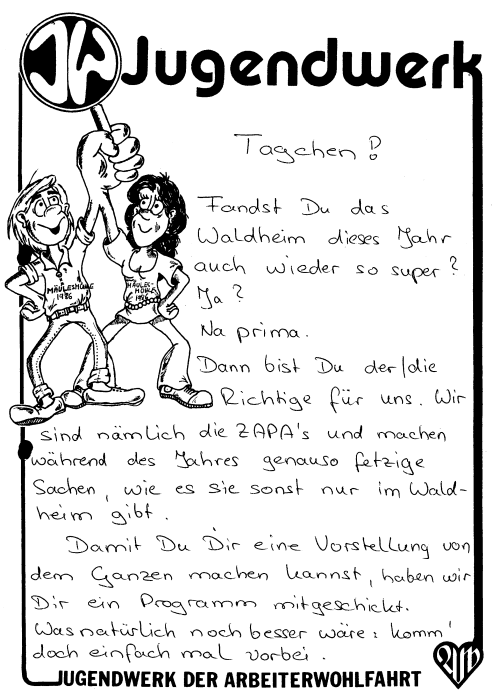 JW Jugendwerk
Tagchen!
Fandst Du das
Waldheim dieses Jahr
auch wieder so super?
Ja?
Na prima.
Dann bist Du der/die
Richtige für uns. Wir
sind nämlich die ZAPA's und machen
während des Jahres genauso fetzige
Sachen, wie es sie sonst nur im Wald-
heim gibt.
Damit Du Dir eine Vorstellung von
dem Ganzen machen kannst, haben wir
Dir ein Programm mitgeschickt.
Was natürlich noch besser wäre: komm'
doch einfach mal vorbei.
MÄULESMÜHLE
1986
MÄULES-
MÜHLE
1986
JUGENDWERK DER ARBEITERWOHLFAHRT
AW